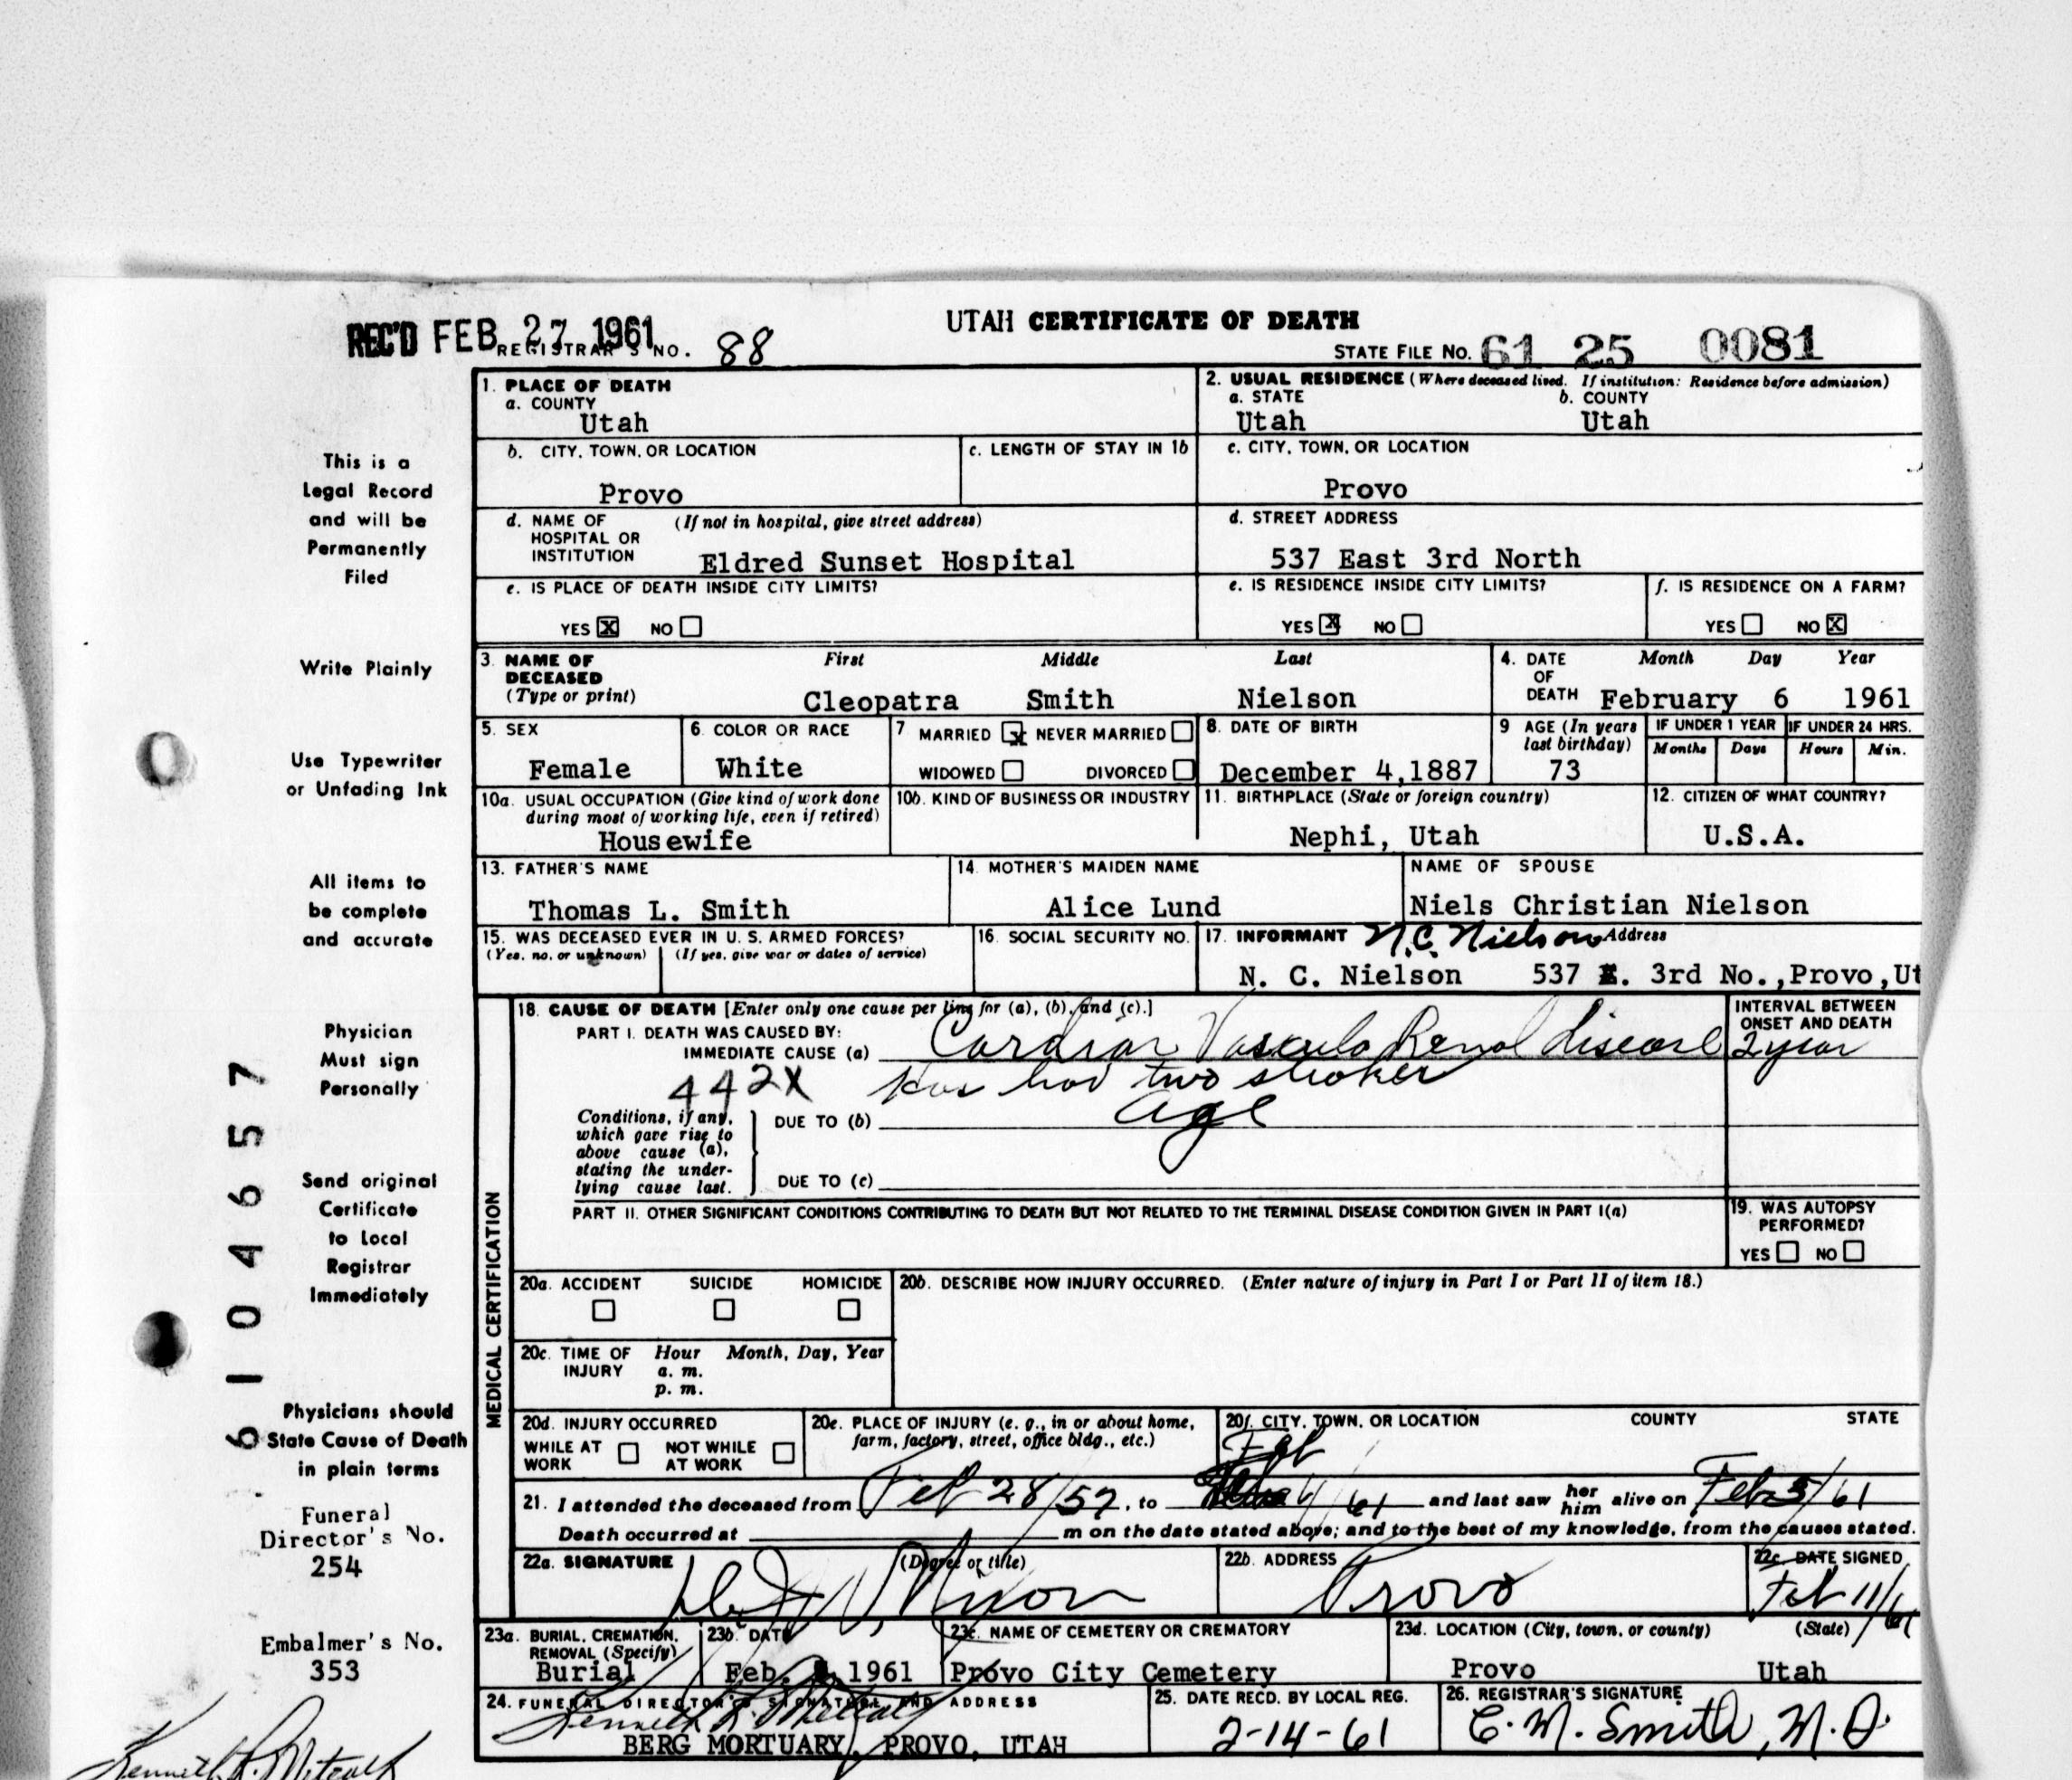 REC'D FEB 27 1961
UTAH CERTIFICATE OF DEATH
REGISTRAR'S NO. 88
STATE FILE NO. 61 25 0081
This is a
Legal Record
and will be
Permanently
Filed
Write Plainly
Use Typewriter
or Unfading Ink
All items to
be complete
and accurate
Physician
Must sign
Personally
Send original
Certificate
to Local
Registrar
Immediately
Physicians should
State Cause of Death
in plain terms
Funeral
Director's No.
254
Embalmer's No.
353
Kenneth R. Metcalf
6104657
1. PLACE OF DEATH
a. COUNTY
Utah
2. USUAL RESIDENCE (Where deceased lived. If institution: Residence before admission)
a. STATE b. COUNTY
Utah Utah
b. CITY, TOWN, OR LOCATION
Provo
c. LENGTH OF STAY IN 1b
c. CITY, TOWN, OR LOCATION
Provo
d. NAME OF (If not in hospital, give street address)
HOSPITAL OR
INSTITUTION Eldred Sunset Hospital
d. STREET ADDRESS
537 East 3rd North
e. IS PLACE OF DEATH INSIDE CITY LIMITS?
YES X NO
e. IS RESIDENCE INSIDE CITY LIMITS?
YES X NO
f. IS RESIDENCE ON A FARM?
YES NO X
3. NAME OF First Middle Last
DECEASED
(Type or print) Cleopatra Smith Nielson
4. DATE Month Day Year
OF
DEATH February 6 1961
5. SEX
Female
6. COLOR OR RACE
White
7 MARRIED X NEVER MARRIED
WIDOWED DIVORCED
8. DATE OF BIRTH
December 4,1887
9 AGE (In years
last birthday)
73
IF UNDER 1 YEAR IF UNDER 24 HRS.
Months Days Hours Min.
10a. USUAL OCCUPATION (Give kind of work done
during most of working life, even if retired)
Housewife
10b. KIND OF BUSINESS OR INDUSTRY
11. BIRTHPLACE (State or foreign country)
Nephi, Utah
12. CITIZEN OF WHAT COUNTRY?
U.S.A.
13. FATHER'S NAME
Thomas L. Smith
14. MOTHER'S MAIDEN NAME
Alice Lund
NAME OF SPOUSE
Niels Christian Nielson
15. WAS DECEASED EVER IN U. S. ARMED FORCES?
(Yes, no, or unknown) (If yes, give war or dates of service)
16. SOCIAL SECURITY NO.
17. INFORMANT N.C. Nielson Address
N. C. Nielson 537 E. 3rd No.,Provo,Ut
MEDICAL CERTIFICATION
18. CAUSE OF DEATH [Enter only one cause per line for (a), (b), and (c).]
PART I. DEATH WAS CAUSED BY:
IMMEDIATE CAUSE (a) Cardiac Vasculo Renal disease
Has had two strokes
442X
INTERVAL BETWEEN
ONSET AND DEATH
2 year
Conditions, if any,
which gave rise to
above cause (a),
stating the under-
lying cause last.
DUE TO (b) age
DUE TO (c)
PART II. OTHER SIGNIFICANT CONDITIONS CONTRIBUTING TO DEATH BUT NOT RELATED TO THE TERMINAL DISEASE CONDITION GIVEN IN PART I(a)
19. WAS AUTOPSY
PERFORMED?
YES NO
20a. ACCIDENT SUICIDE HOMICIDE
20b. DESCRIBE HOW INJURY OCCURRED. (Enter nature of injury in Part I or Part II of item 18.)
20c. TIME OF Hour Month, Day, Year
INJURY a. m.
p. m.
20d. INJURY OCCURRED
WHILE AT NOT WHILE
WORK AT WORK
20e. PLACE OF INJURY (e. g., in or about home,
farm, factory, street, office bldg., etc.)
20f. CITY, TOWN, OR LOCATION COUNTY STATE
Feb
21. I attended the deceased from Feb 28/57, to 6/61 and last saw her him alive on Feb 5/61
Death occurred at m on the date stated above; and to the best of my knowledge, from the causes stated.
22a. SIGNATURE (Degree or title)
Nixon
22b. ADDRESS
Provo
22c. DATE SIGNED
Feb 11/61
23a. BURIAL, CREMATION,
REMOVAL (Specify)
Burial
23b. DATE
Feb. 1961
23c. NAME OF CEMETERY OR CREMATORY
Provo City Cemetery
23d. LOCATION (City, town, or county) (State)
Provo Utah
24. FUNERAL DIRECTOR'S SIGNATURE AND ADDRESS
Kenneth R. Metcalf
BERG MORTUARY, PROVO, UTAH
25. DATE RECD. BY LOCAL REG.
2-14-61
26. REGISTRAR'S SIGNATURE
C. M. Smith, M.D.